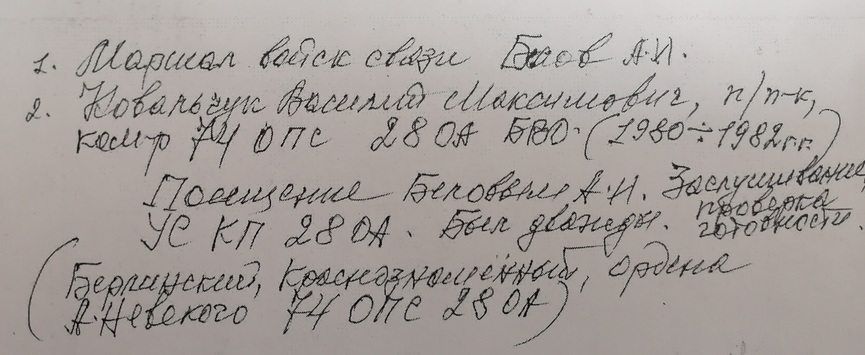 1. Маршал войск связи Белов А.И.
2. Ковальчук Василий Максимович, п/п-к,
ком-р 74 ОПС 28 ОА БВО. (1980÷1982 г.г.)
Посещение Беловым А.И. Заслушивание,
УС КП 28 ОА. Был дважды. проверка
готовности.
(Берлинский, Краснознамённый, ордена
А.Невского 74 ОПС 28 ОА)